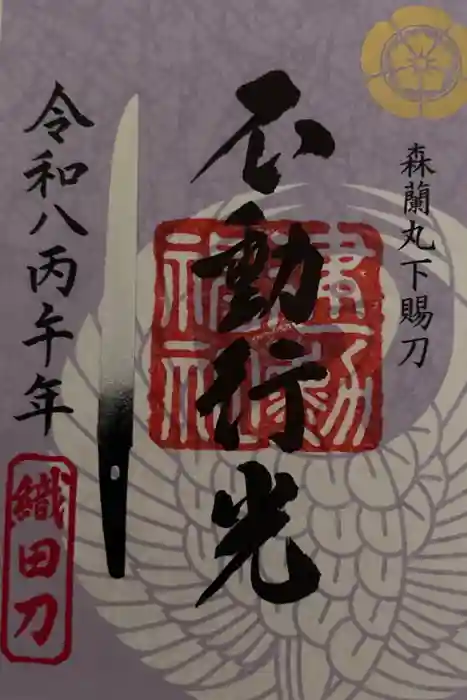 森蘭丸下賜刀
不動行光
令和八丙午年
織田刀